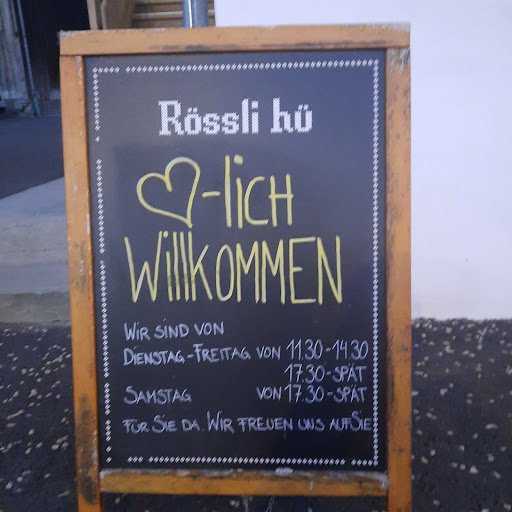 Rössli hü
♡-lich
Willkommen
Wir sind von
Dienstag-Freitag von 11.30-14.30
17.30-spät
Samstag von 17.30-spät
für Sie da. Wir freuen uns auf Sie